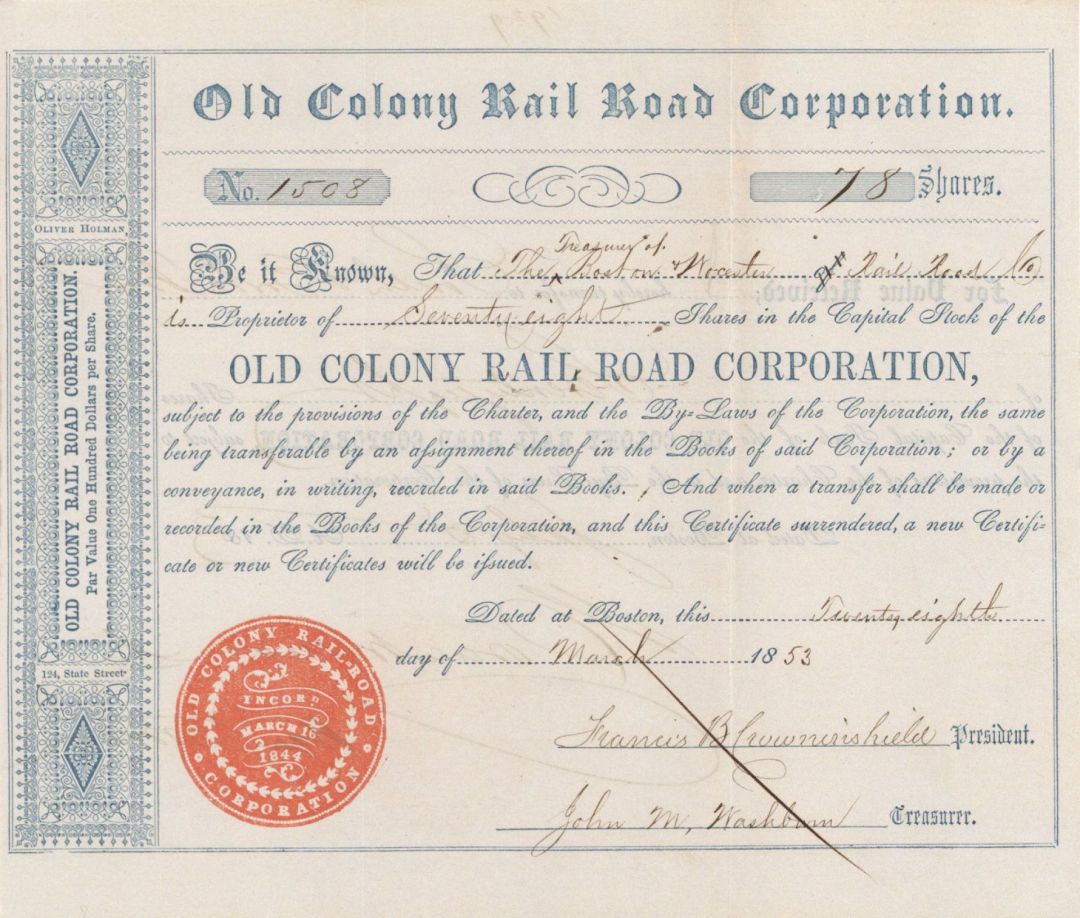 Old Colony Rail Road Corporation.
No. 1508
78 Shares.
OLIVER HOLMAN,
OLD COLONY RAIL ROAD CORPORATION.
Par Value One Hundred Dollars per Share.
124, State Street
Treasurer of
Be it Known, That The Boston & Worcester Rail Road Co
is Proprietor of Seventy eight Shares in the Capital Stock of the
OLD COLONY RAIL ROAD CORPORATION,
subject to the provisions of the Charter, and the By-Laws of the Corporation, the same
being transferable by an assignment thereof in the Books of said Corporation; or by a
conveyance, in writing, recorded in said Books. And when a transfer shall be made or
recorded, in the Books of the Corporation, and this Certificate surrendered, a new Certifi-
cate or new Certificates will be issued.
Dated at Boston, this Twenty eighth
day of March 1853
OLD COLONY RAIL-ROAD CORPORATION
INCORP.
MARCH 16
1844
Francis B Crowninshield President.
John M, Washburn Treasurer.